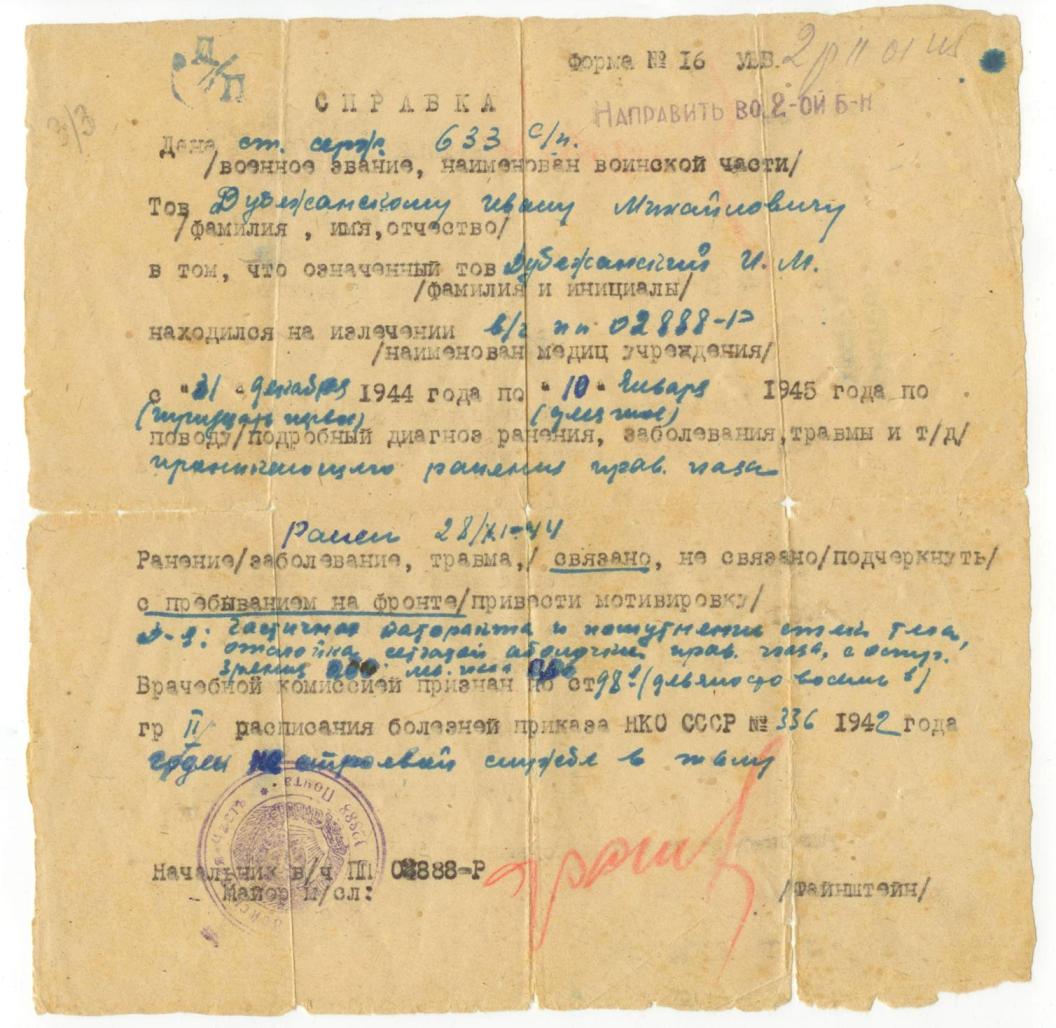 Форма № 16 УВВ.
3/3
СПРАВКА
НАПРАВИТЬ ВО 2-ОЙ Б-Н
Дана ст. серж. 633 с/п.
/военное звание, наименован воинской части/
Тов Дубежанскому Ивану Михайловичу
/фамилия , имя, отчество/
в том, что означенный тов Дубежанский И. М.
/фамилия и инициалы/
находился на излечении в/ч пп 02888-Р
/наименован медиц учреждения/
с "31" декабря 1944 года по "10" Января 1945 года по
(тридцать первое) (десятое)
поводу/подробный диагноз ранения, заболевания, травмы и т/д/
проникающего ранения прав. глаза
Ранен 28/XI-44
Ранение/заболевание, травма,/ связано, не связано/подчеркнуть/
с пребыванием на фронте/привести мотивировку/
Д-з: Частичная катаракта и помутнение стекл тела,
отслойка сетчатой оболочки прав. глаза, с остр.
зрения лев. глаза
Врачебной комиссией признан по ст 98 (девяносто восемь)
гр II расписания болезней приказа НКО СССР № 336 1942 года
годен не строевой службе в тылу
Начальник в/ч ПП 02888-Р
Майор м/сл: /Файнштейн/